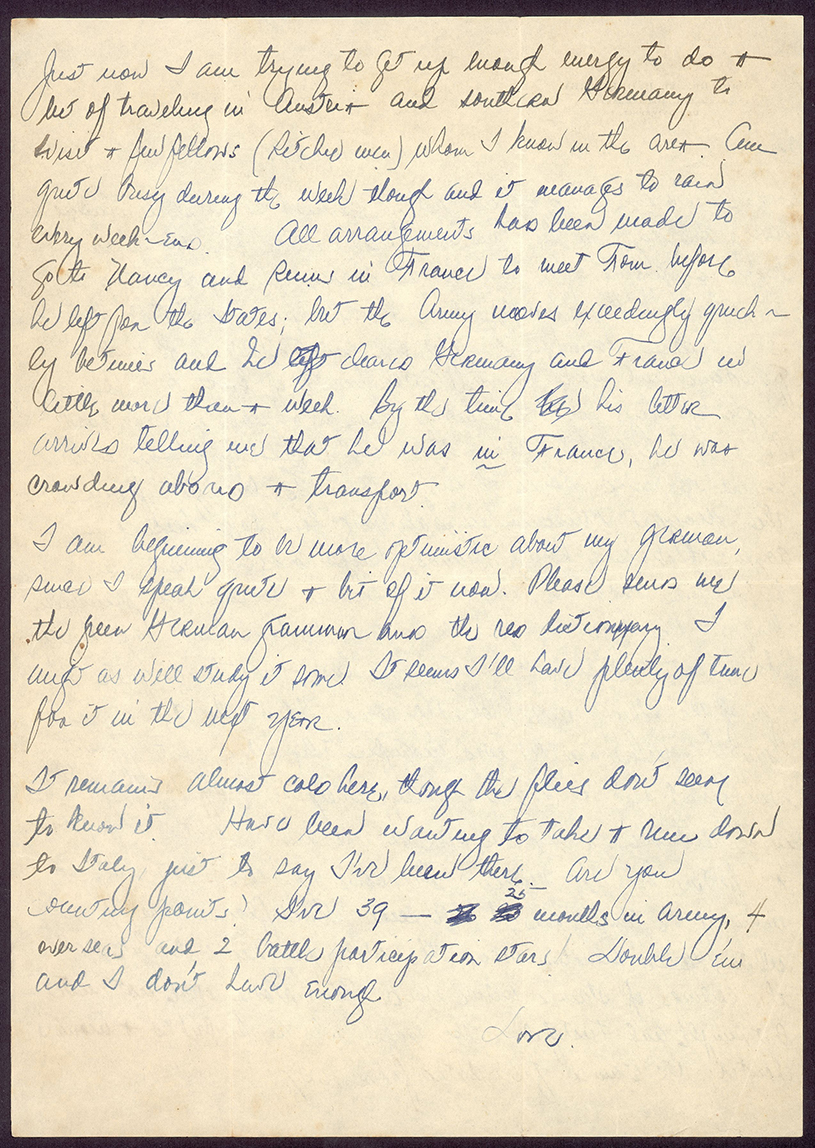 Just now I am trying to get up enough energy to do a
bit of traveling in Austria and southern Germany to
visit a few fellows (Ritchie men) whom I know in the area. Am
quite busy during the week though and it manages to rain
every week-end. All arrangements has been made to
go to Nancy and Reims in France to meet Tom before
he left for the States; but the Army moves exceedingly quick-
ly betimes and he left cleared Germany and France in
little more than a week. By the time his letter
arrived telling me that he was in France, he was
crowding aboard a transport.
I am beginning to be more optimistic about my German,
since I speak quite a bit of it now. Please send me
the green German grammar and the red dictionary. I
might as well study it some. It seems I'll have plenty of time
for it in the next year.
It remains almost cold here, though the flies don't seem
to know it. Have been wanting to take a run down
to Italy, just to say I've been there. Are you
counting points? I've 39 — 25 months in army, 4
overseas and 2 battle participation stars! Double 'em
and I don't have enough
Love.